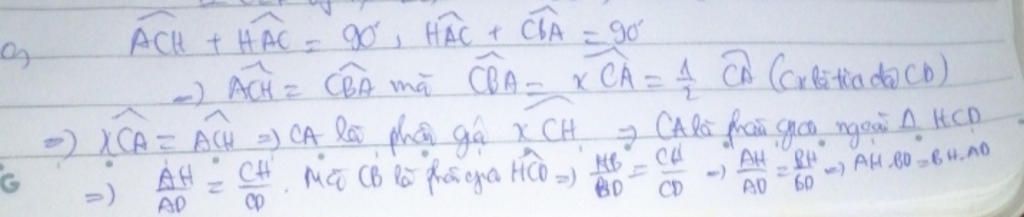 a) ∠ACH + ∠HAC = 90°, ∠HAC + ∠CBA = 90°
=) ∠ACH = ∠CBA mà ∠CBA = ∠xCA = 1/2 CA (Cx là tia đối CD)
=) ∠xCA = ∠ACH => CA là phân giác ∠xCH => CA là phân giác ngoài Δ HCD
=) AH/AD = CH/CD. Mà CB là phân giác ∠HCD =) HB/BD = CH/CD =) AH/AD = BH/BD =) AH.BD = BH.AD